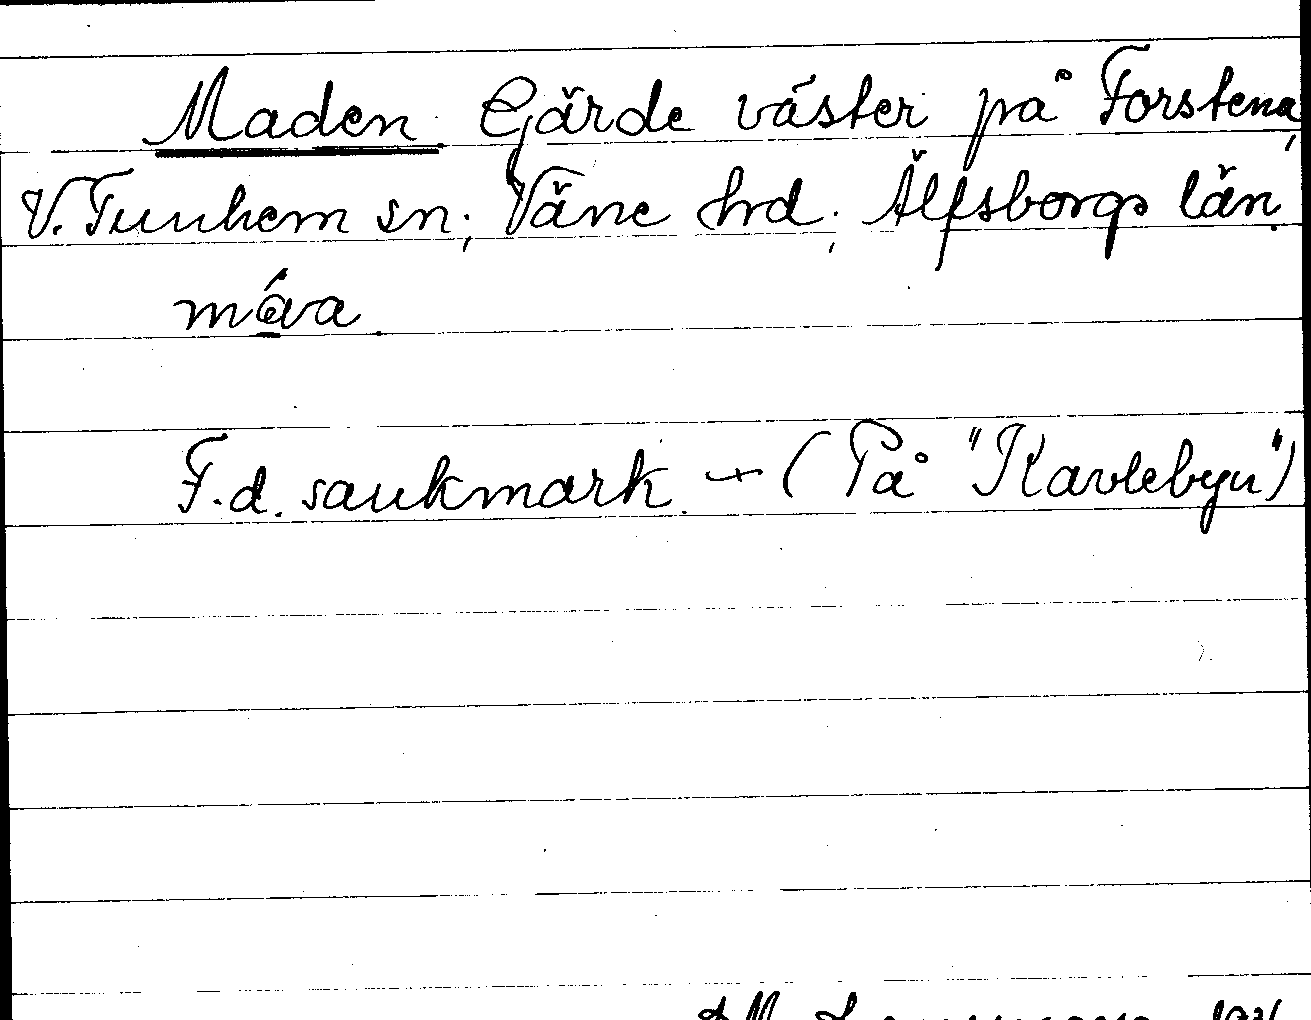 Maden Gärde väster på Forstena,
V. Tunhem sn; Väne hrd; Älfsborgs län.
måva.
F.d. saukmark. – (På "Kavlebyn")